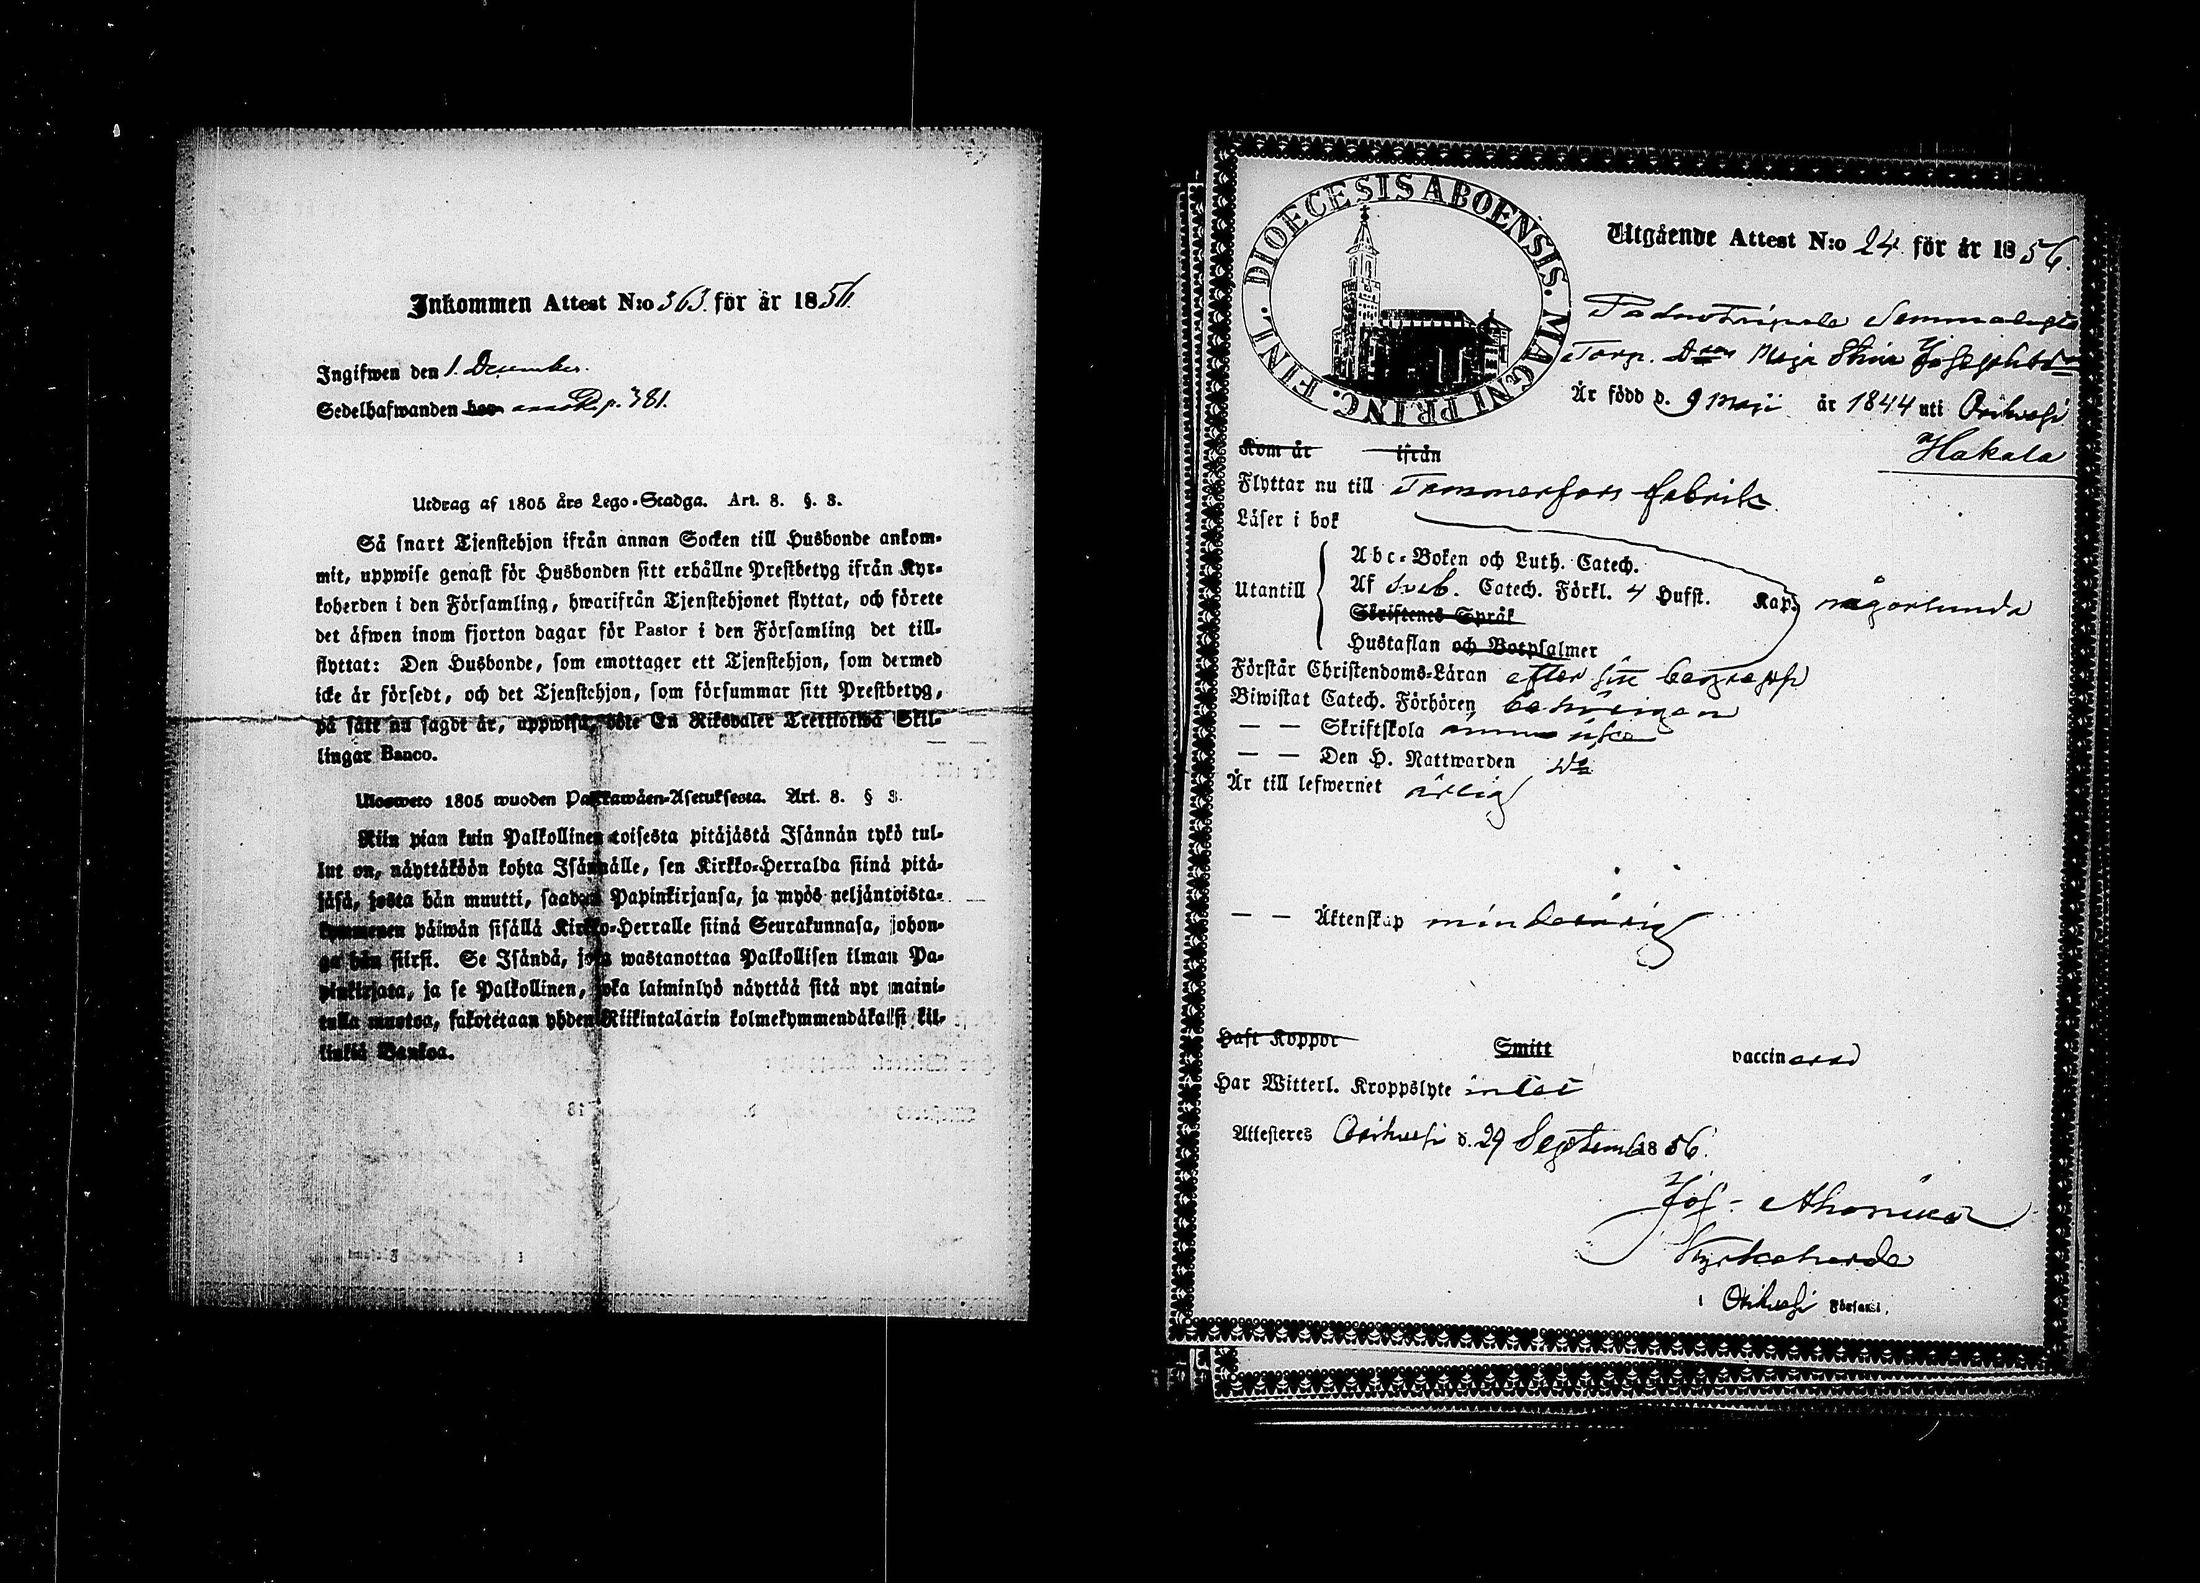 Inkommen Attest N:o 563. för år 1856.
Ingifwen den 1. December.
Sedelhafwanden hos p. 381.
Utdrag af 1805 års Lego-Stadga. Art. 8. §. 3.
Så snart Tjenstehjon ifrån annan Socken till Husbonde ankom-
mit, uppwise genast för Husbonden sitt erhållne Prestbetyg ifrån Kyr-
koherden i den Församling, hwarifrån Tjenstehjonet flyttat, och förete
det äfwen inom fjorton dagar för Pastor i den Församling det till-
flyttat: Den Husbonde, som emottager ett Tjenstehjon, som dermed
icke är försedt, och det Tjenstehjon, som försummar sitt Prestbetyg,
på sätt nu sagdt är, uppwisa, böte En Riksdaler Trettiotwå Skil-
lingar Banco.
Ulosweto 1805 wuoden Palkawäen-Asetuksesta. Art. 8. § 3.
Niin pian kuin Palkollinen toisesta pitäjästä Isännän tykö tul-
lut on, näyttäköön kohta Isännälle, sen Kirkko-Herralda siinä pitä-
jäsä, josta hän muutti, saadun Papinkirjansa, ja myös neljäntoista-
kymmenen päiwän sisällä Kirkko-Herralle siinä Seurakunnasa, johon-
ga hän siirsi. Se Isändä, joka wastanottaa Palkollisen ilman Pa-
pinkirjata, ja se Palkollinen, joka laiminlyö näyttää sitä nyt maini-
tulla muotoa, sakotetaan yhden Riikintalarin kolmekymmendäkaksi kil-
linkiä Bankoa.
DIOECESIS ABOENSIS. MAGNI PRINC. FINL.
Utgående Attest N:o 24 för år 1856.
Torp. Dren Maja Stina Josephsd:r
Är född d. 9 Maji år 1844 uti Orihvesi
Hakala
Kom år ifrån
Flyttar nu till Tammerfors fabrik
Läser i bok
Utantill
Abc-Boken och Luth. Catech.
Af Sveb. Catech. Förkl. 4 Hufst. Kap. någorlunda
Skriftenes Språk
Hustaflan och Botpsalmer
Förstår Christendoms-Läran efter sitt begrepp
Biwistat Catech. Förhören behörigen
— — Skriftskola ännu icke
— — Den H. Nattwarden do
Är till lefwernet ärlig
— — Äktenskap minderårig
Haft Koppor Smitt vaccinerad
Har Witterl. Kroppslyte intet
Attesteres Orihvesi d. 29 Septemb. 1856.
Jos. Ahonius
Kyrkoherde
i Orihvesi Församl.